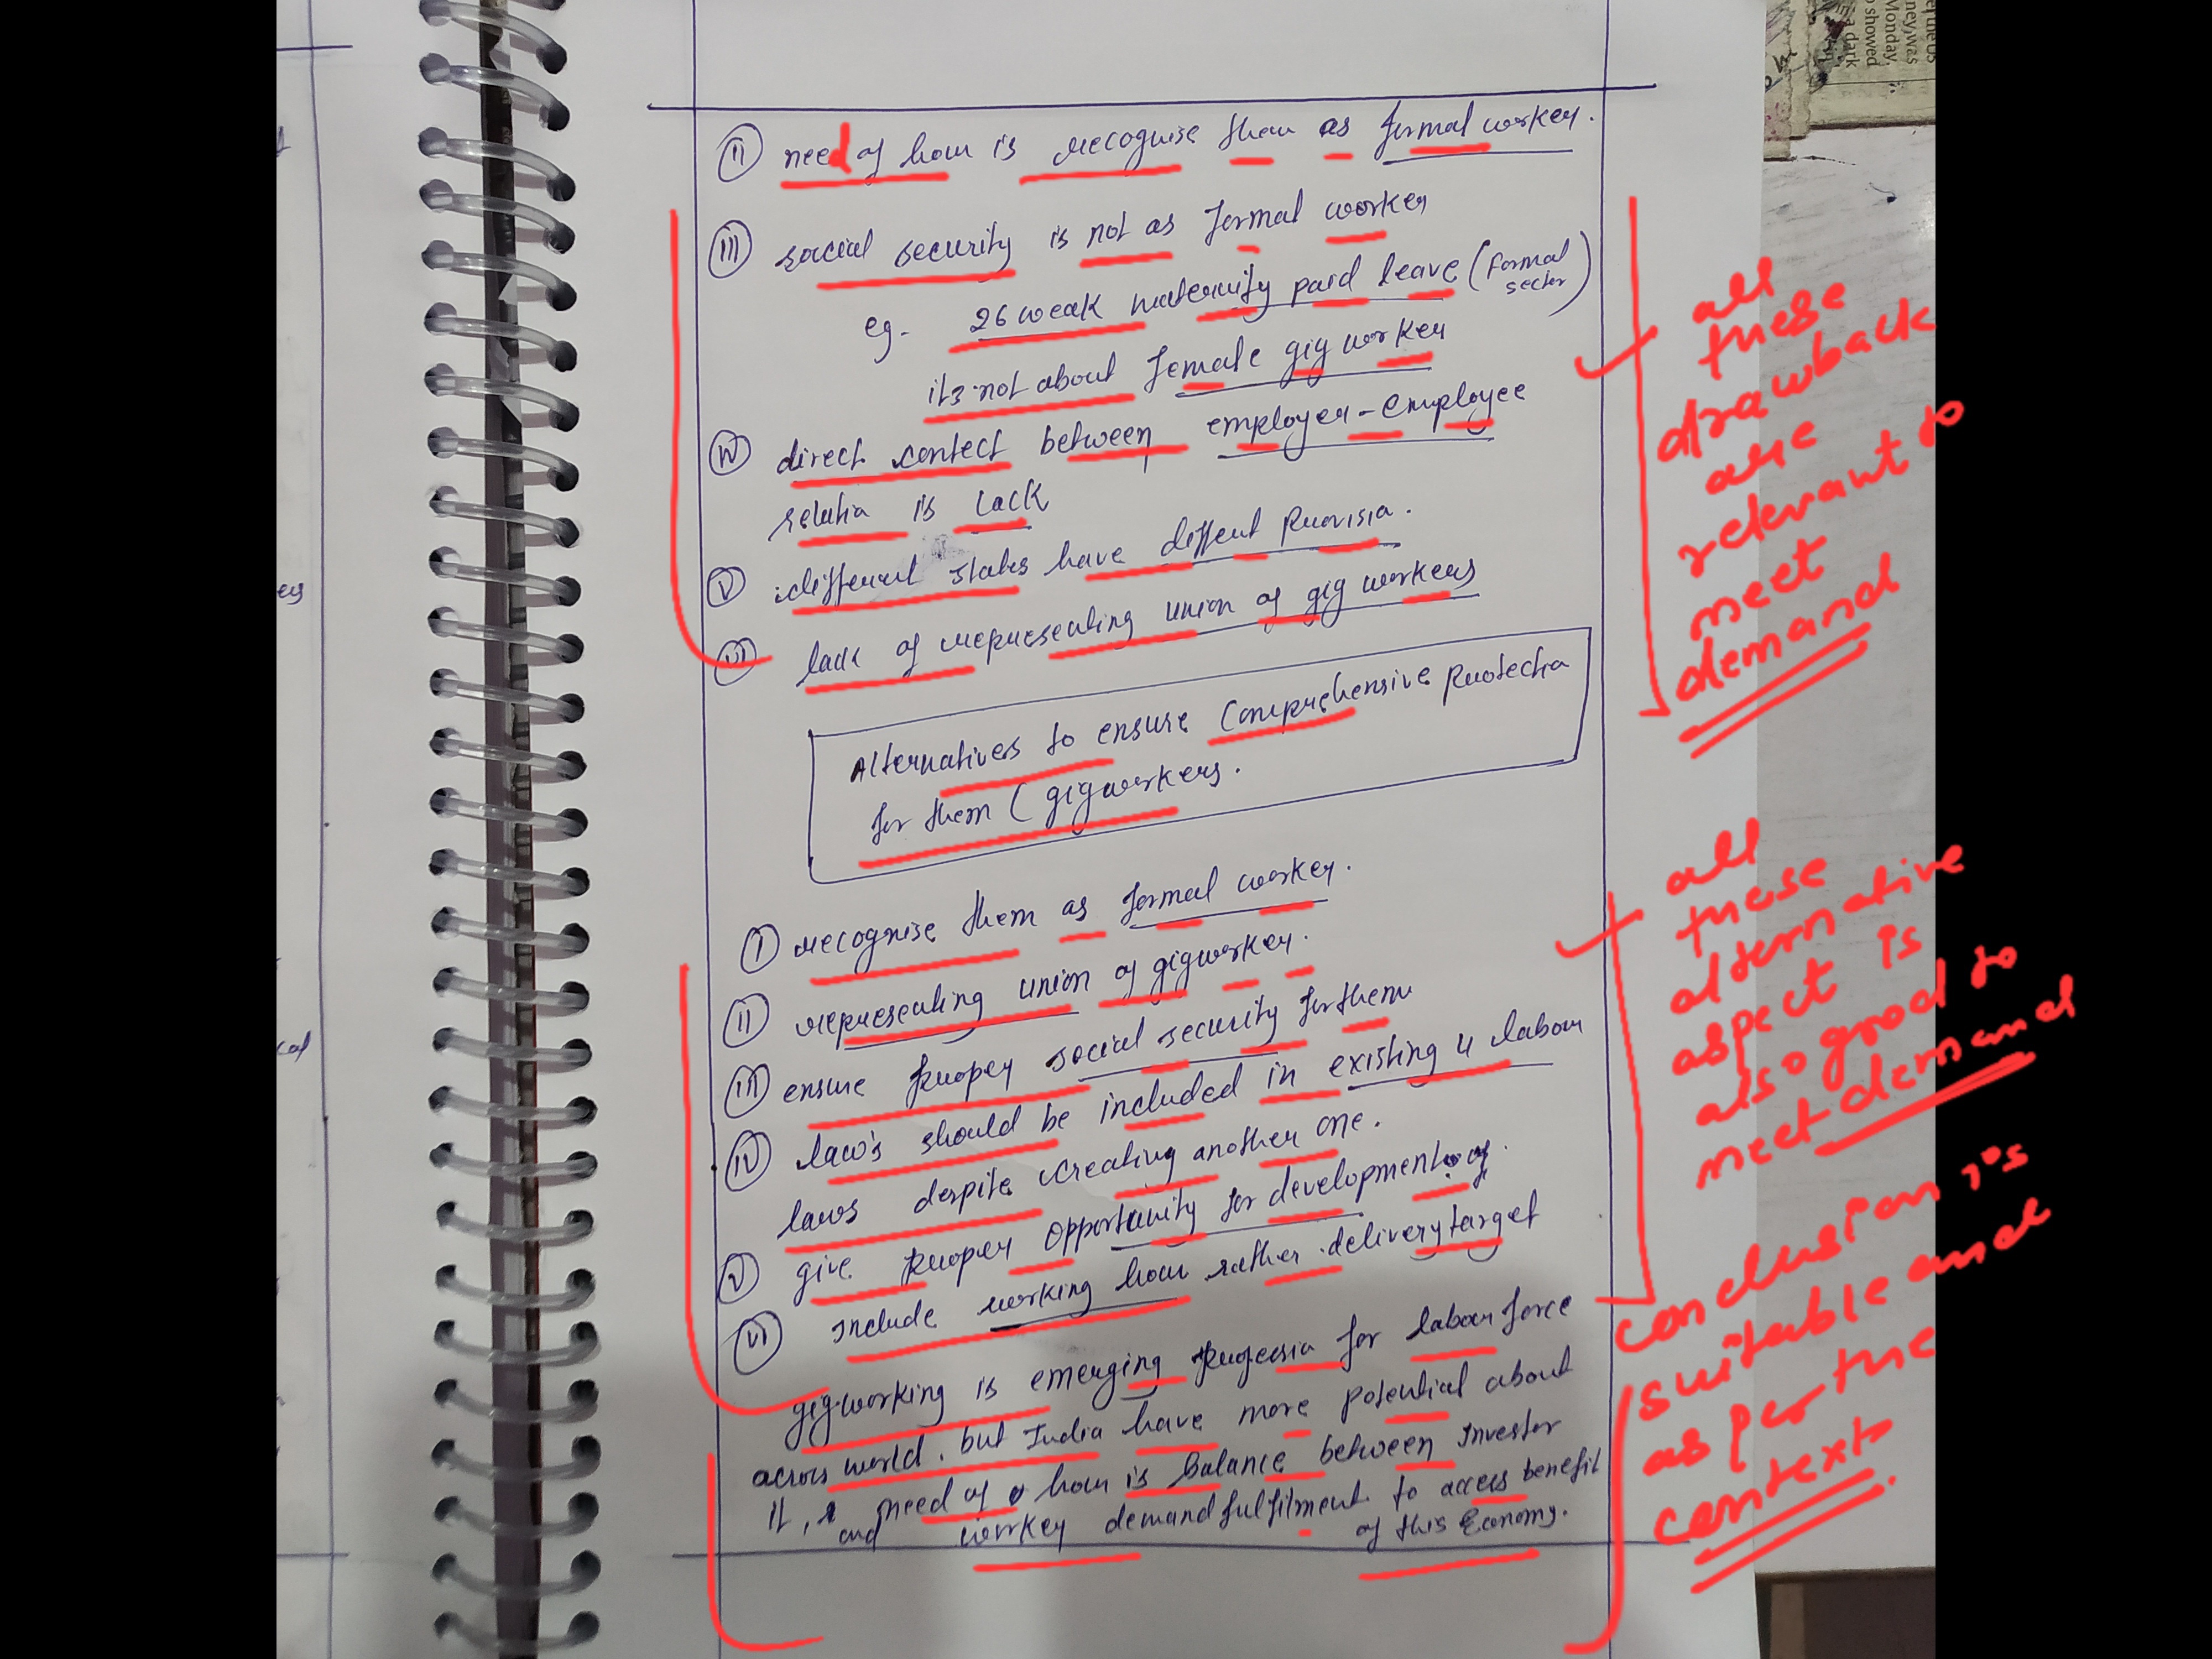 (II) need of hour is recognise them as formal worker.
(III) social security is not as formal worker
eg. 26 weak maternity paid leave (formal sector)
its not about female gig worker
(IV) direct contect between employer-employee
relatia is lack
(V) different states have diffent provisia.
(VI) lack of representing union of gig workers
Alternatives to ensure comprehensive protectia
for them (gigworkers.
(I) recognise them as formal worker.
(II) representing union of gigworker.
(III) ensure proper social security for them
(IV) law's should be included in existing 4 labour
laws despite creating another one.
(V) give proper opportunity for development of.
(VI) Include working hour rather delivery target
gigworking is emerging for labour force
across world. but India have more potential about
it, need of hour is Balance between Investor
and worker demand fulfilment to access benefit
of this Economy.
all
these
drawback
are
relevant to
meet
demand
all
these
alternative
aspect is
also good to
meet demand
conclusion is
suitable and
as per the
context.
ney was
Monday,
showed
a dark